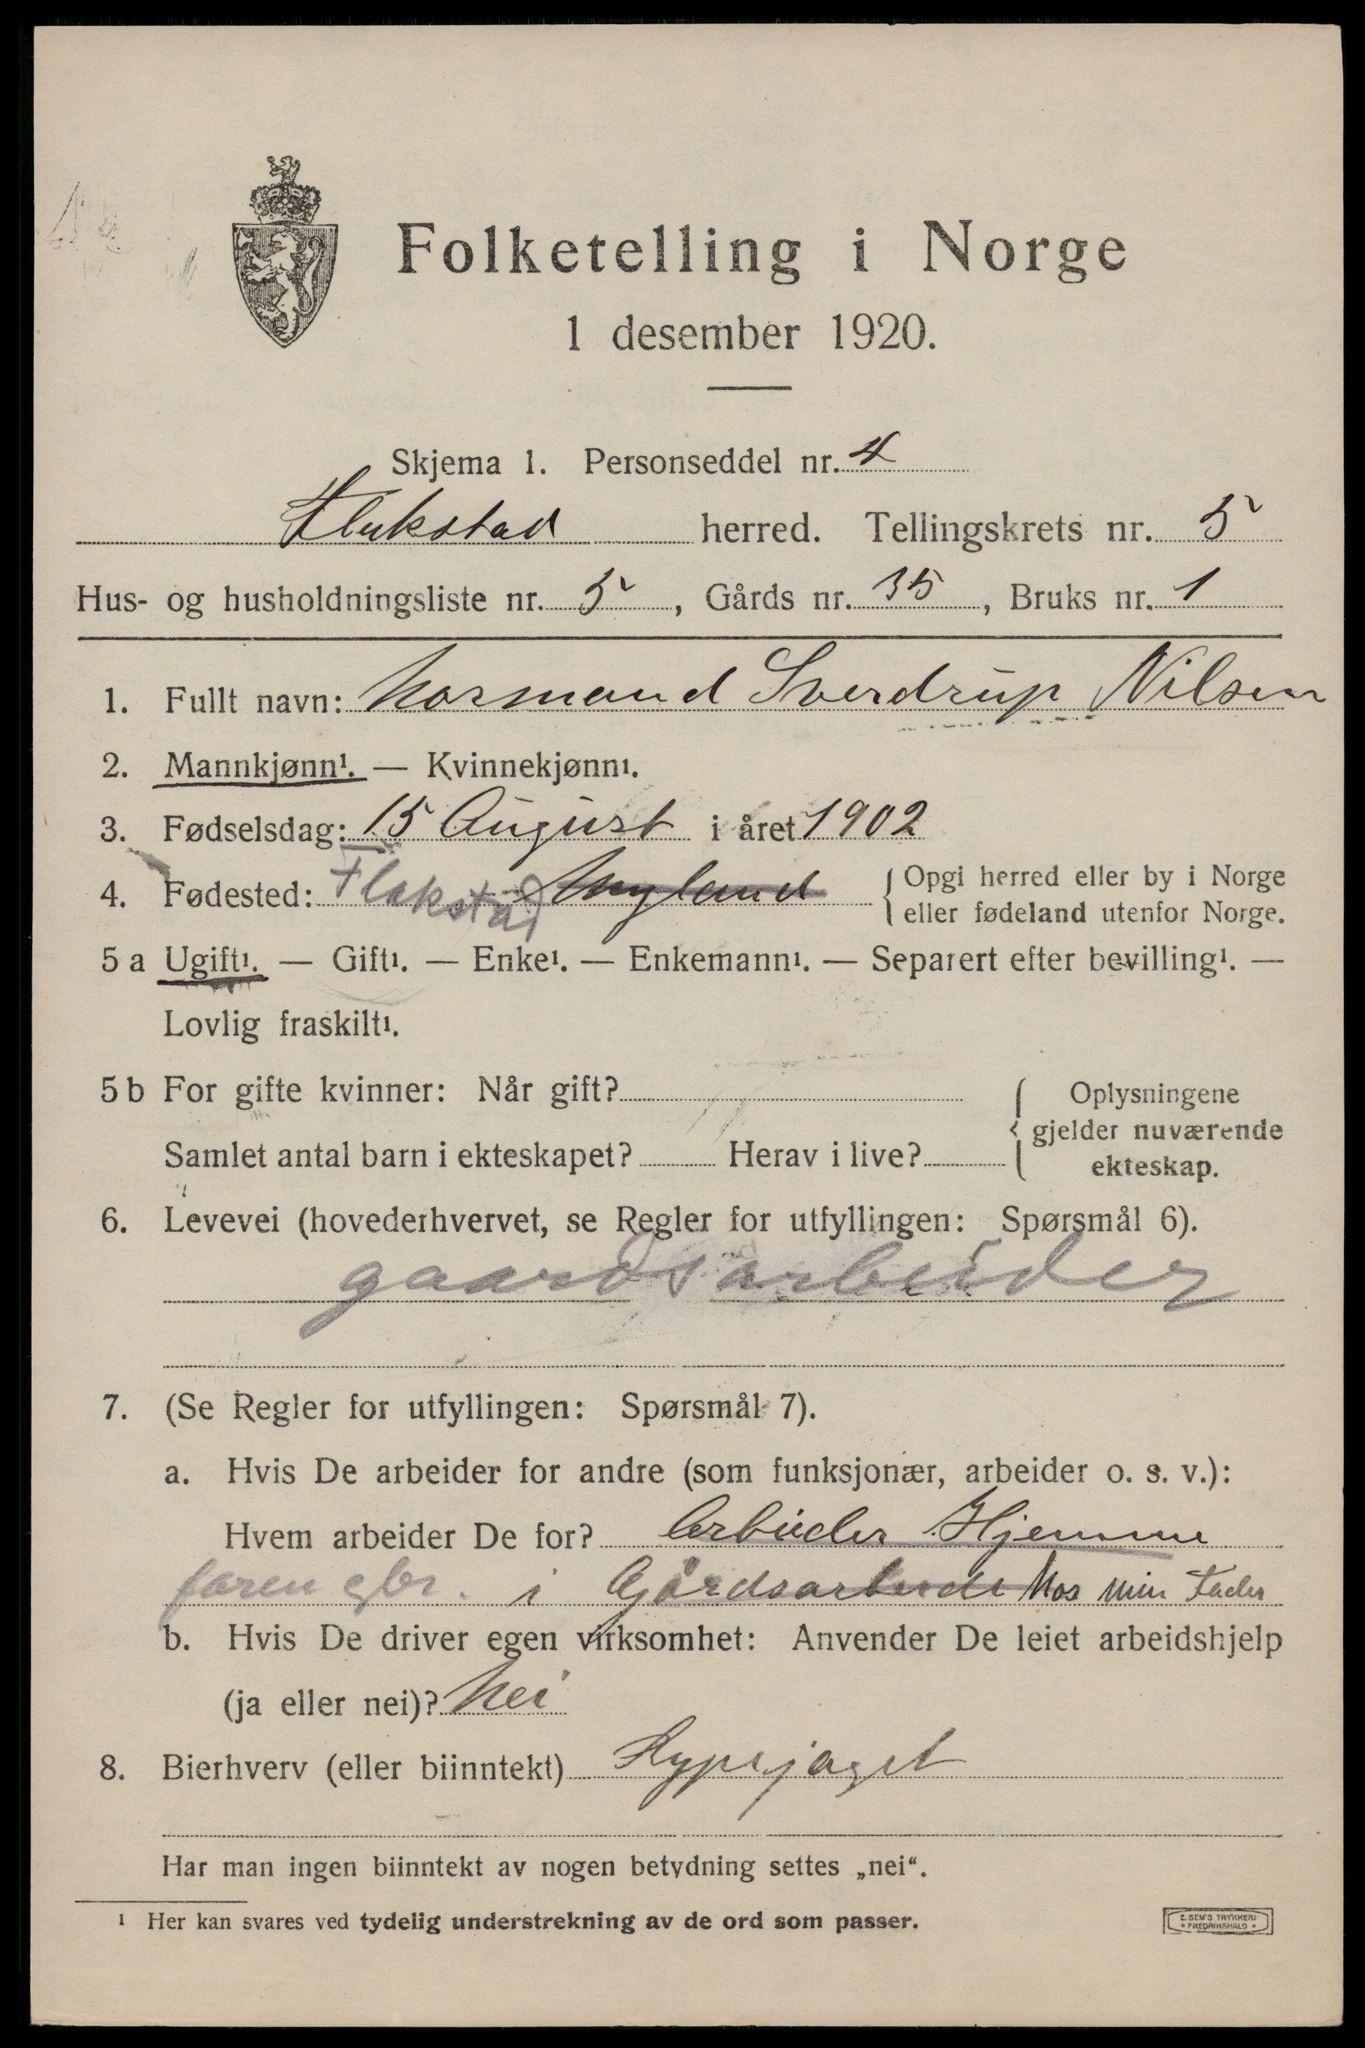 Folketelling i Norge
1 desember 1920.
Skjema 1. Personseddel nr. 4
Flakstad herred. Tellingskrets nr. 5
Hus- og husholdningsliste nr. 5, Gårds nr. 35, Bruks nr. 1
1. Fullt navn: Normand Sverdrup Nilsen
2. Mannkjønn¹. — Kvinnekjønn¹.
3. Fødselsdag: 15 August i året 1902
4. Fødested: Flakstad Myland {Opgi herred eller by i Norge
eller fødeland utenfor Norge.
5 a Ugift¹. — Gift¹. — Enke¹. — Enkemann¹. — Separert efter bevilling¹. —
Lovlig fraskilt¹.
5 b For gifte kvinner: Når gift?
Samlet antal barn i ekteskapet? Herav i live?
{Oplysningene
gjelder nuværende
ekteskap.
6. Levevei (hovederhvervet, se Regler for utfyllingen: Spørsmål 6).
gaardsarbeider
7. (Se Regler for utfyllingen: Spørsmål 7).
a. Hvis De arbeider for andre (som funksjonær, arbeider o. s. v.):
Hvem arbeider De for? Arbeider Hjemme
faren gbr. i Gårdsarbeide hos min Fader
b. Hvis De driver egen virksomhet: Anvender De leiet arbeidshjelp
(ja eller nei)? Nei
8. Bierhverv (eller biinntekt) Rypejaget
Har man ingen biinntekt av nogen betydning settes „nei“.
¹ Her kan svares ved tydelig understrekning av de ord som passer.
E. SEM'S TRYKKERI
FREDRIKSHALD